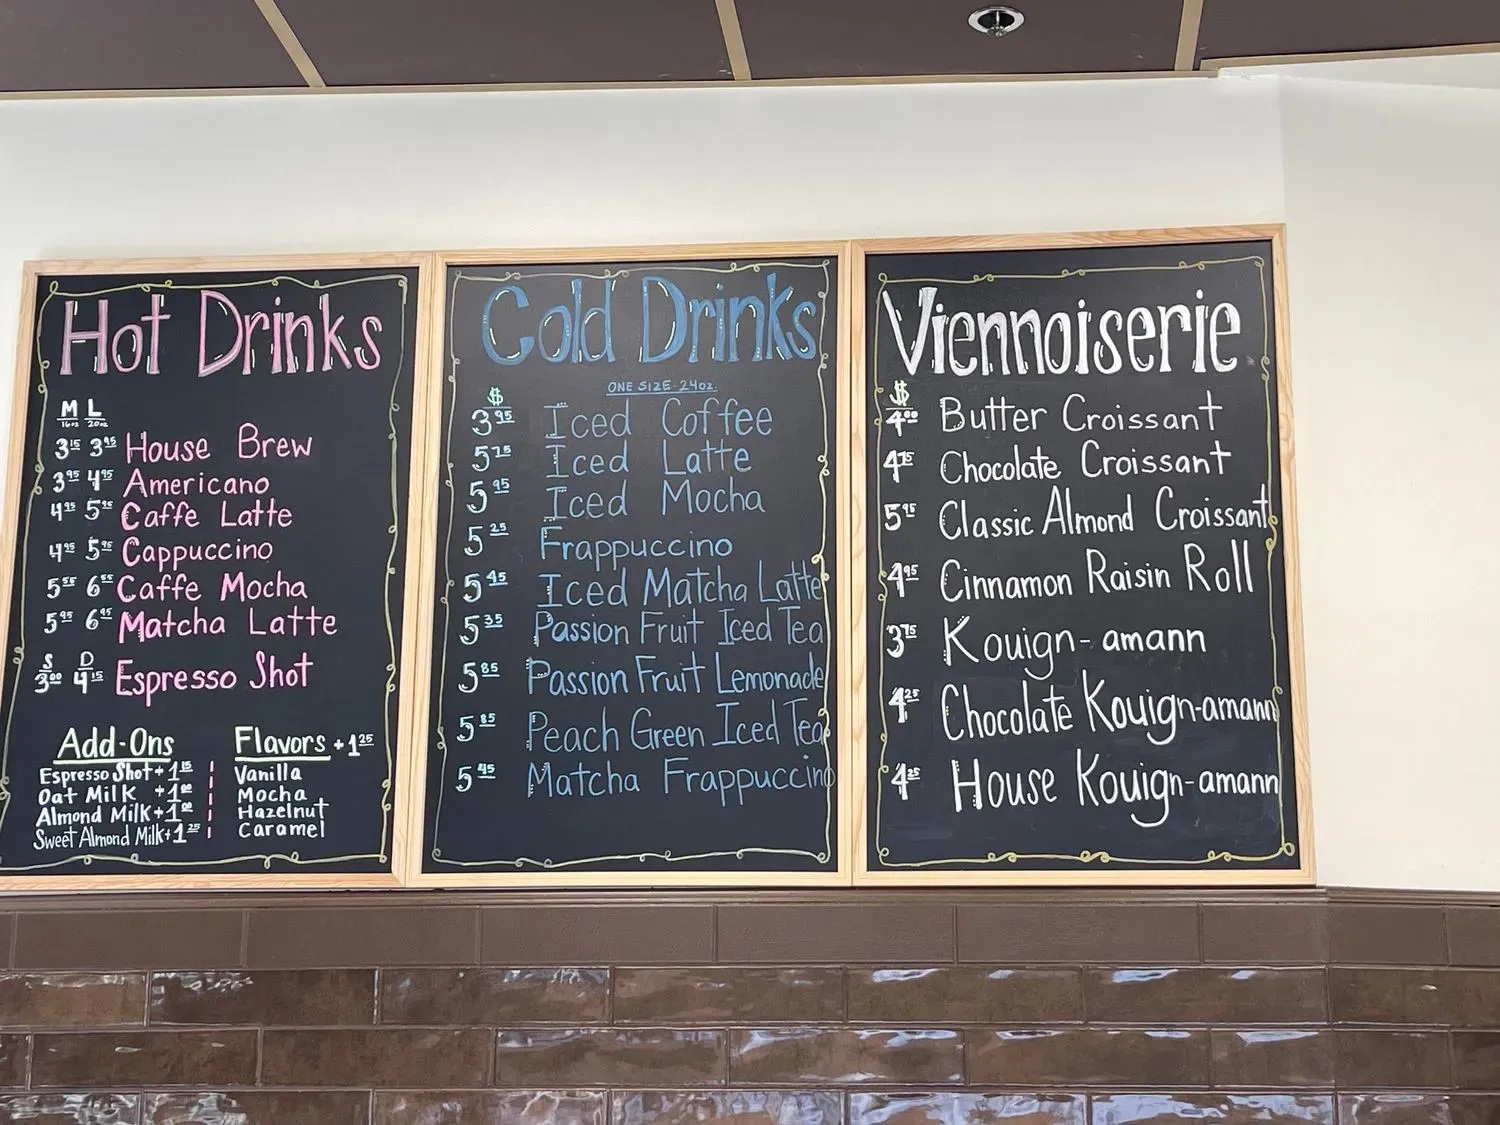 Hot Drinks
M L
16oz 20oz
3.15 3.95 House Brew
3.95 4.95 Americano
4.95 5.95 Caffe Latte
4.95 5.95 Cappuccino
5.55 6.55 Caffe Mocha
5.95 6.95 Matcha Latte
S D
3.00 4.15 Espresso Shot
Add-Ons
Espresso Shot + 1.15
Oat Milk + 1.00
Almond Milk + 1.00
Sweet Almond Milk + 1.25
Flavors + 1.25
Vanilla
Mocha
Hazelnut
Caramel
Cold Drinks
ONE SIZE - 24oz.
$
3.95 Iced Coffee
5.75 Iced Latte
5.95 Iced Mocha
5.25 Frappuccino
5.45 Iced Matcha Latte
5.35 Passion Fruit Iced Tea
5.85 Passion Fruit Lemonade
5.85 Peach Green Iced Tea
5.45 Matcha Frappuccino
Viennoiserie
$
4.00 Butter Croissant
4.75 Chocolate Croissant
5.95 Classic Almond Croissant
4.95 Cinnamon Raisin Roll
3.75 Kouign-amann
4.25 Chocolate Kouign-amann
4.25 House Kouign-amann